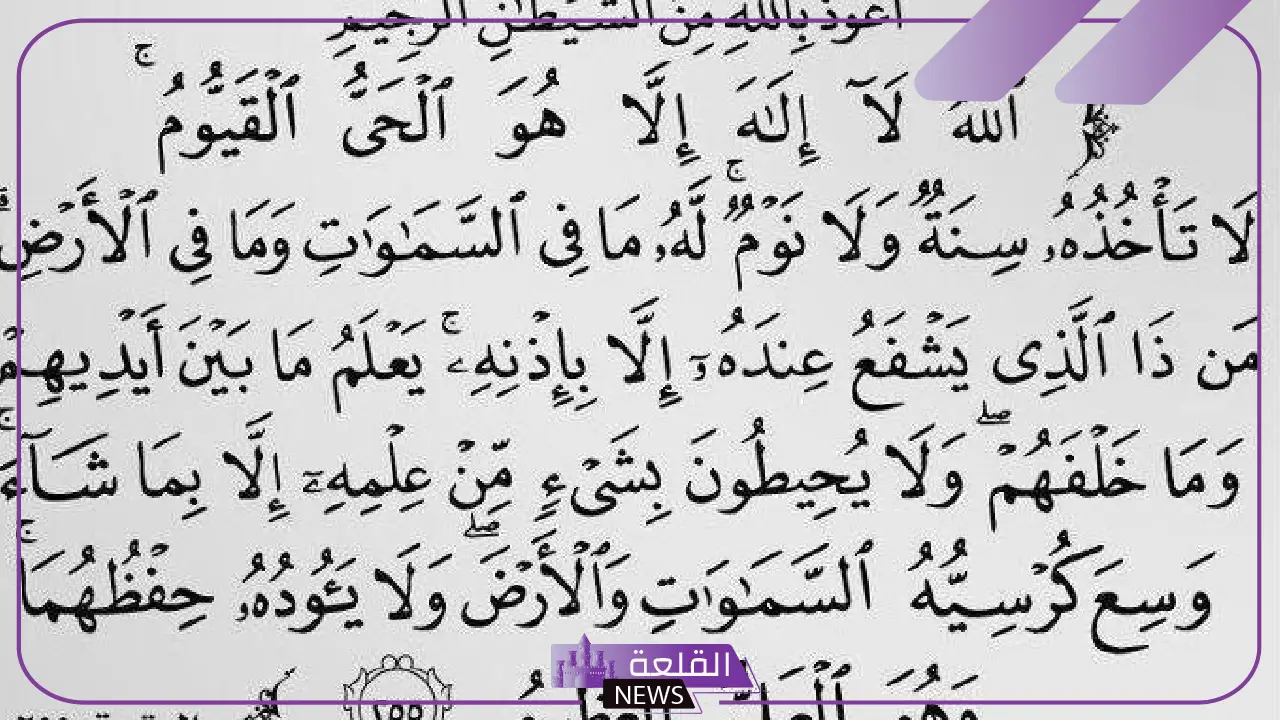 أعوذ بالله من الشيطان الرجيم
ٱللَّهُ لَآ إِلَٰهَ إِلَّا هُوَ ٱلْحَىُّ ٱلْقَيُّومُ ۚ
لَا تَأْخُذُهُۥ سِنَةٌ وَلَا نَوْمٌ ۚ لَّهُۥ مَا فِى ٱلسَّمَٰوَٰتِ وَمَا فِي ٱلْأَرْضِ ۗ
مَن ذَا ٱلَّذِى يَشْفَعُ عِندَهُۥٓ إِلَّا بِإِذْنِهِۦ ۚ يَعْلَمُ مَا بَيْنَ أَيْدِيهِمْ
وَمَا خَلْفَهُمْ ۖ وَلَا يُحِيطُونَ بِشَىْءٍ مِّنْ عِلْمِهِۦٓ إِلَّا بِمَا شَآءَ ۚ
وَسِعَ كُرْسِيُّهُ ٱلسَّمَٰوَٰتِ وَٱلْأَرْضَ ۖ وَلَا يَـُٔودُهُۥ حِفْظُهُمَا ۚ
وَهُوَ ٱلْعَلِىُّ ٱلْعَظِيمُ ٢٥٥
القلعة
NEWS